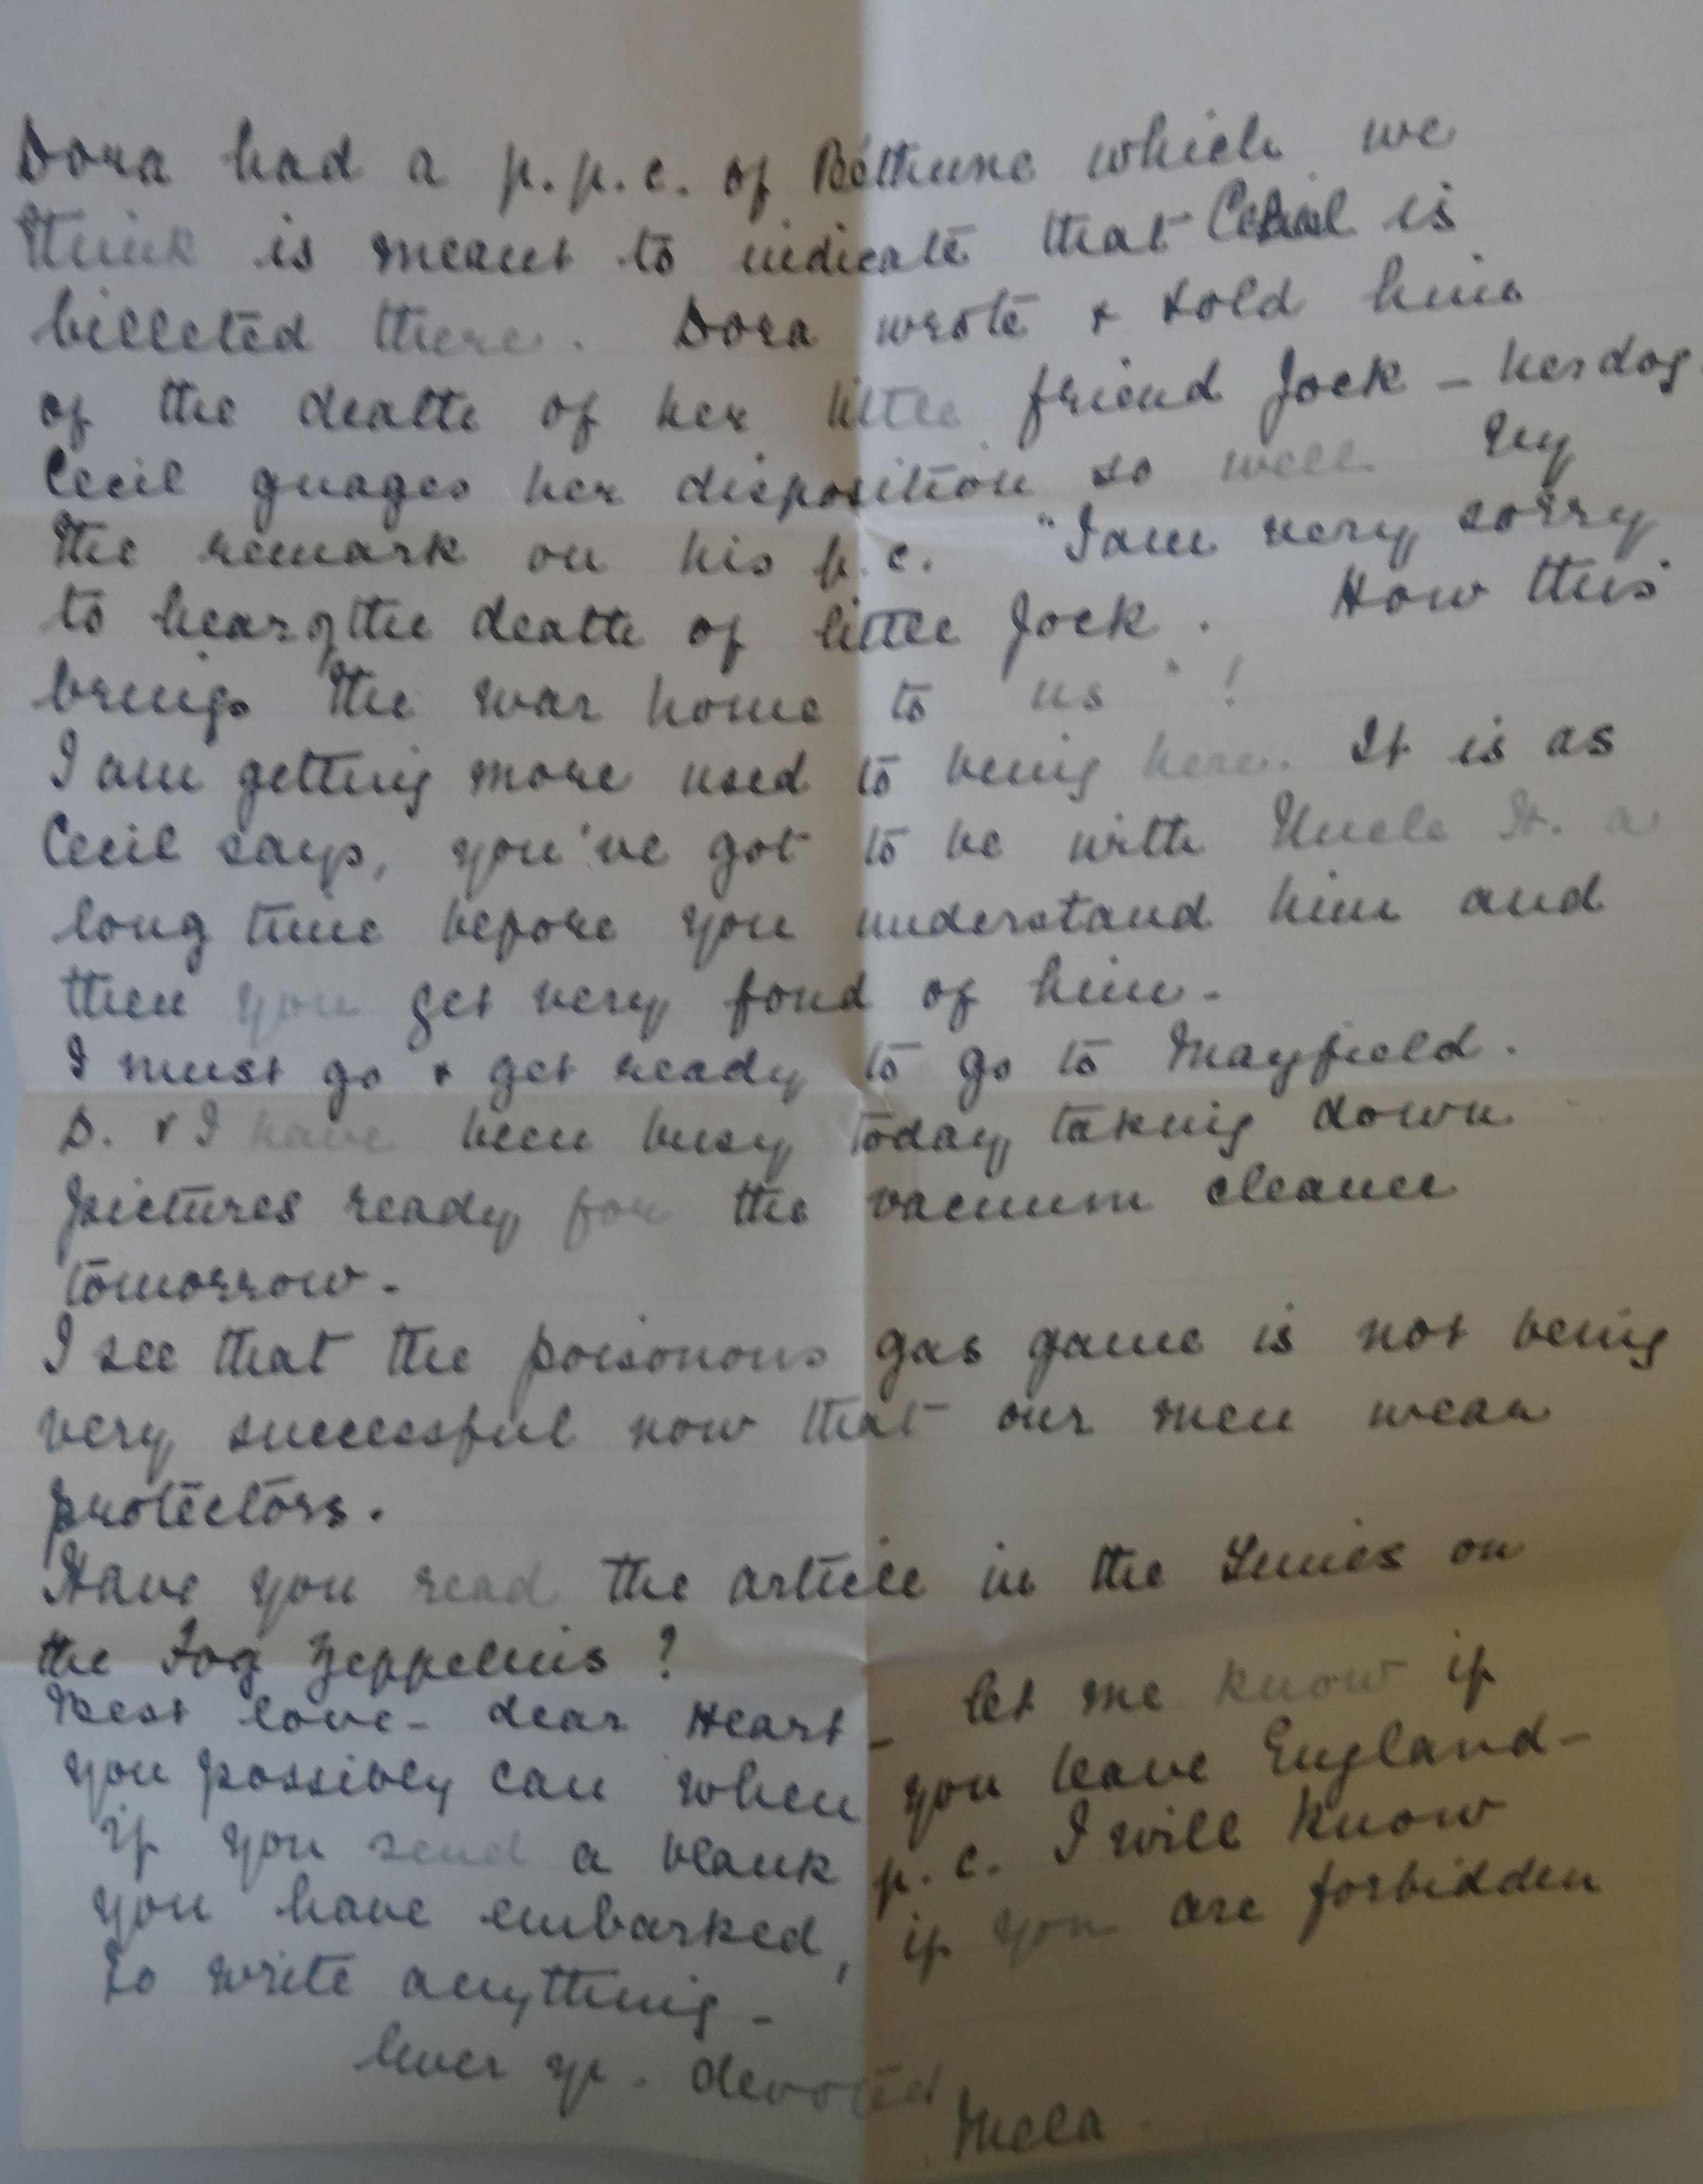 Dora had a p.p.c. of Béthune which we
think is meant to indicate that Cecil is
billeted there. Dora wrote & told him
of the death of her little friend Jock – her dog.
Cecil guages her disposition so well by
the remark on his p.c. "I am very sorry
to hear of the death of little Jock. How this
brings the war home to us"!
I am getting more used to being here. It is as
Cecil says, you've got to be with Uncle H. a
long time before you understand him and
then you get very fond of him –
I must go & get ready to go to Mayfield.
D. & I have been busy today taking down
pictures ready for the vacuum cleaner
tomorrow –
I see that the poisonous gas game is not being
very successful now that our men wear
protectors.
Have you read the article in the Times on
the Fog Zeppelins?
Best love – dear Heart – let me know if
you possibly can when you leave England –
if you send a blank p.c. I will know
you have embarked, if you are forbidden
to write anything –
Ever yr. devoted